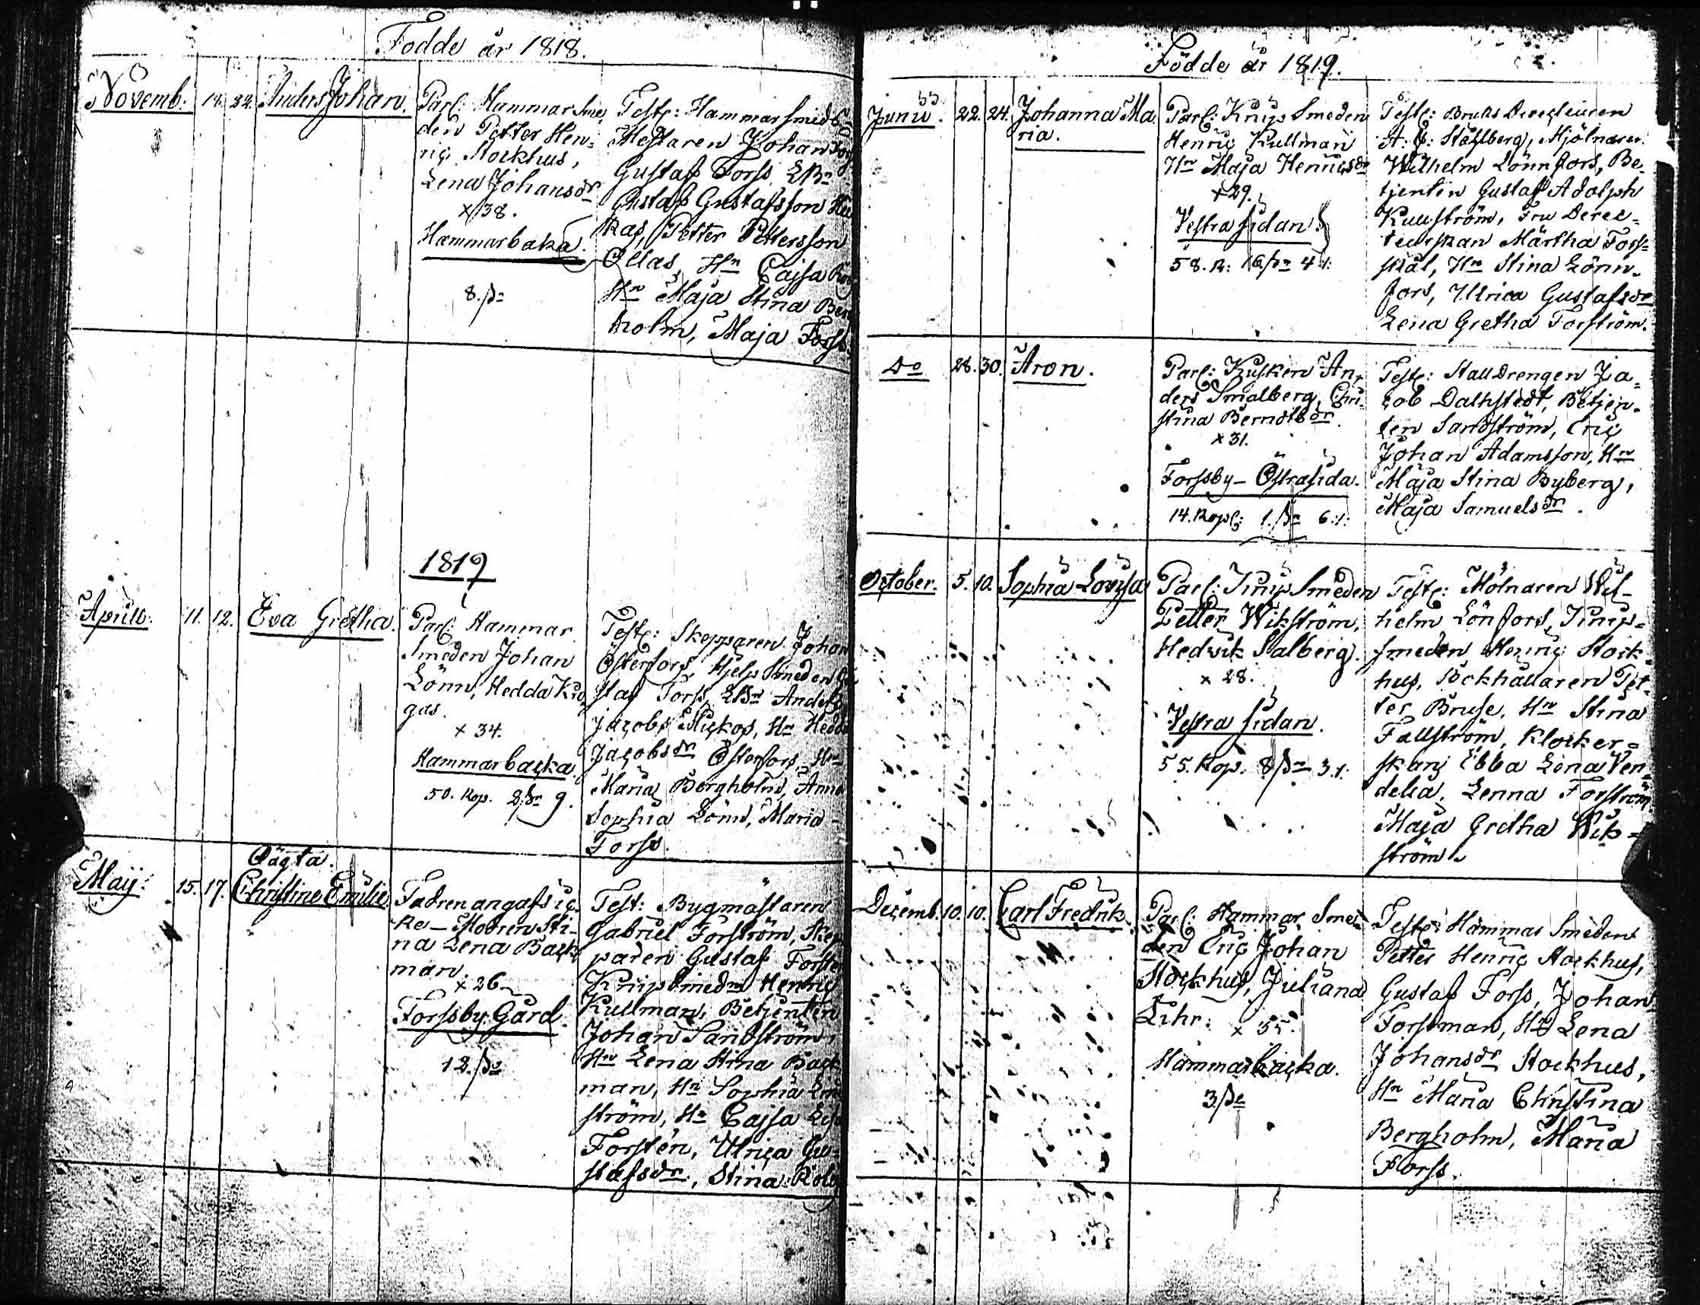 Födde år 1818.
Novemb. 14. 22. Anders Johan.
Par: Hammarsme
den Petter Hen-
ric Stockhus,
Lena Johansdr
x 38.
Hammarbaka.
8.
Test: Hammarsmeds
Mestaren Johan
Gustaf Forss
Gustaf Gustafsson
kas, Petter Pettersson
Ollas, Hn Cajsa
Hn Maja Stina Ber
holm, Maja Forss
1819
Aprill. 11. 12. Eva Gretha.
Par: Hammar
Smeden Johan
Lönn, Hedda
gas.
x 34.
Hammarbacka
50. Kop. 9.
Test: Skepparen Johan
Österfors, Hjelp Smeden
staf Forss, Anders
Jacobs Hn Hedda
Jacobsdr Österfors, Hn
Maria Bergholm, Anna
Sophia Lönn, Maria
Forss.
Oägta.
Maij: 15. 17. Christine Emilie
Fadren angafs ic-
ke – Modren Sti-
na Lena Back
man.
x 26
Forssby Gård.
12.
Test: Bygmästaren
Gabriel Forström, Skep
paren Gustaf Forstén
Knipsmedn Henric
Kullman, Betjenten
Johan Sandström,
Hn Lena Stina Back
man, Hn Sophia
ström, Hn Cajsa
Forstén, Ulrica Gu-
stafsdr, Stina
Födde år 1819.
Junii. 22. 24. Johanna Ma
ria.
Par: Knip Smeden
Henric Kullman
Hn Maja Henricsdr
x 29.
Vestra sidan
58. K: 4
Test: Bruks Directeuren
A. Ståhlberg, Mjölnaren
Wilhelm Lönnfors, Be-
tjenten Gustaf Adolph
Kullström, Fru Direc-
teurskan Märtha Fors-
skål, Hn Stina Lönn-
fors, Ulrica Gustafsdr
Lena Gretha Forström.
Do 28. 30. Aron.
Par: Kusken An-
ders Smalberg, Chri-
stina Berndtsdr.
x 31.
Forssby – Östra sida.
14. Kop: 1. 6.
Test: Stall Drengen Ja-
cob Dahlstedt, Betjen-
ten Sandström, Eric
Johan Adamsson, Hn
Maja Stina Byberg,
Maja Samuelsdr.
October. 5. 10. Sophia Lovisa
Par: Knip Smeden
Petter Wikström,
Hedvik Salberg.
x 28.
Vestra sidan.
55. Kop. 8 3.
Test: Mölnaren Wil-
helm Lönfors, Knip-
smeden Henric Stock-
hus, Bockhållaren Pet-
ter Bruse, Hn Stina
Fallström, Klocker-
skan Ebba Lena Ven-
delia, Lenna Forström
Maja Gretha Wik-
ström.
Decemb. 10. 10. Carl Fredrik.
Par: Hammar Sme-
den Eric Johan
Stockhus, Juliana
Lihr.
x 35
Hammarbacka.
3
Test: Hammar Smeden
Petter Henric Stockhus,
Gustaf Forss, Johan
Forssman, Hn Lena
Johansdr Stockhus,
Hn Maria Christina
Bergholm, Maria
Forss.